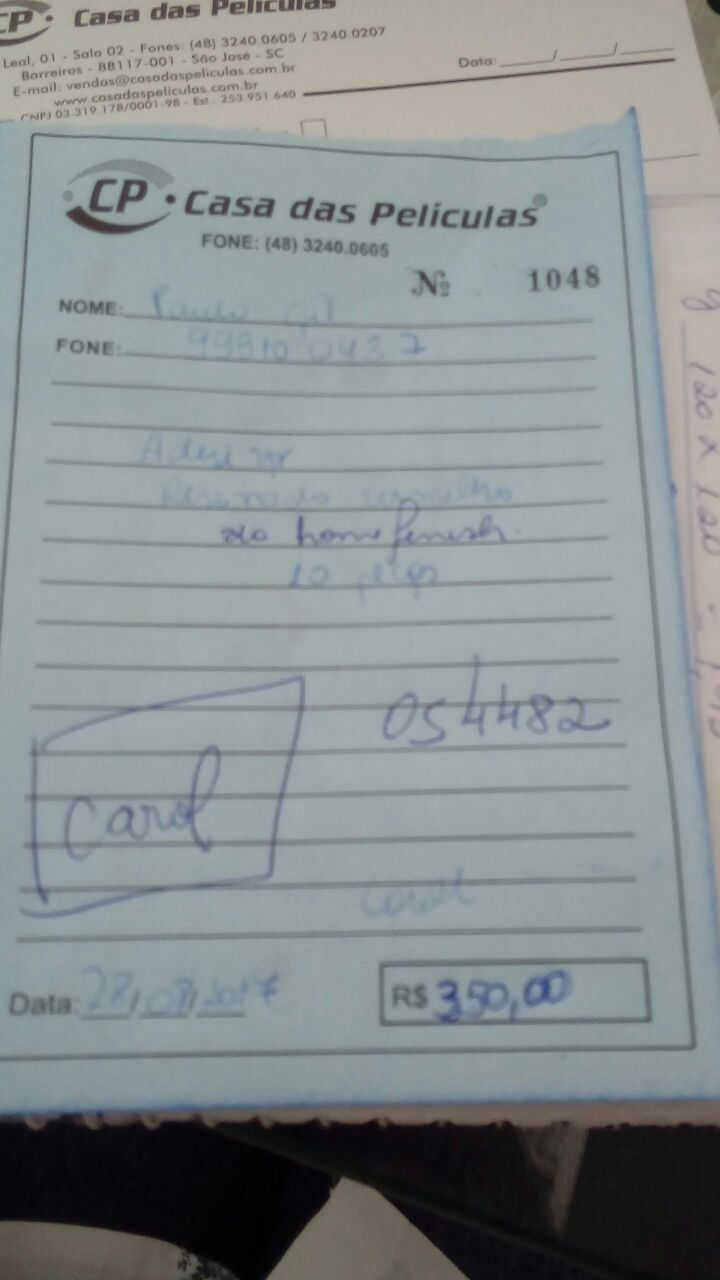 CP Casa das Películas
Leal, 01 - Sala 02 - Fones: (48) 3240.0605 / 3240.0207
Barreiros - 88117-001 - São José - SC
E-mail: vendas@casadaspeliculas.com.br
www.casadaspeliculas.com.br
CNPJ 03.319.178/0001-98 - Est.: 253.951.640
Data: ___/___/___
CP Casa das Películas®
FONE: (48) 3240.0605
Nº 1048
NOME: Paulo
FONE: 99910 0437
Adesivo
Resinado vermelho
do home
10 peças
054482
Carol
Data: 28/08/2017
R$ 350,00
120 x 120